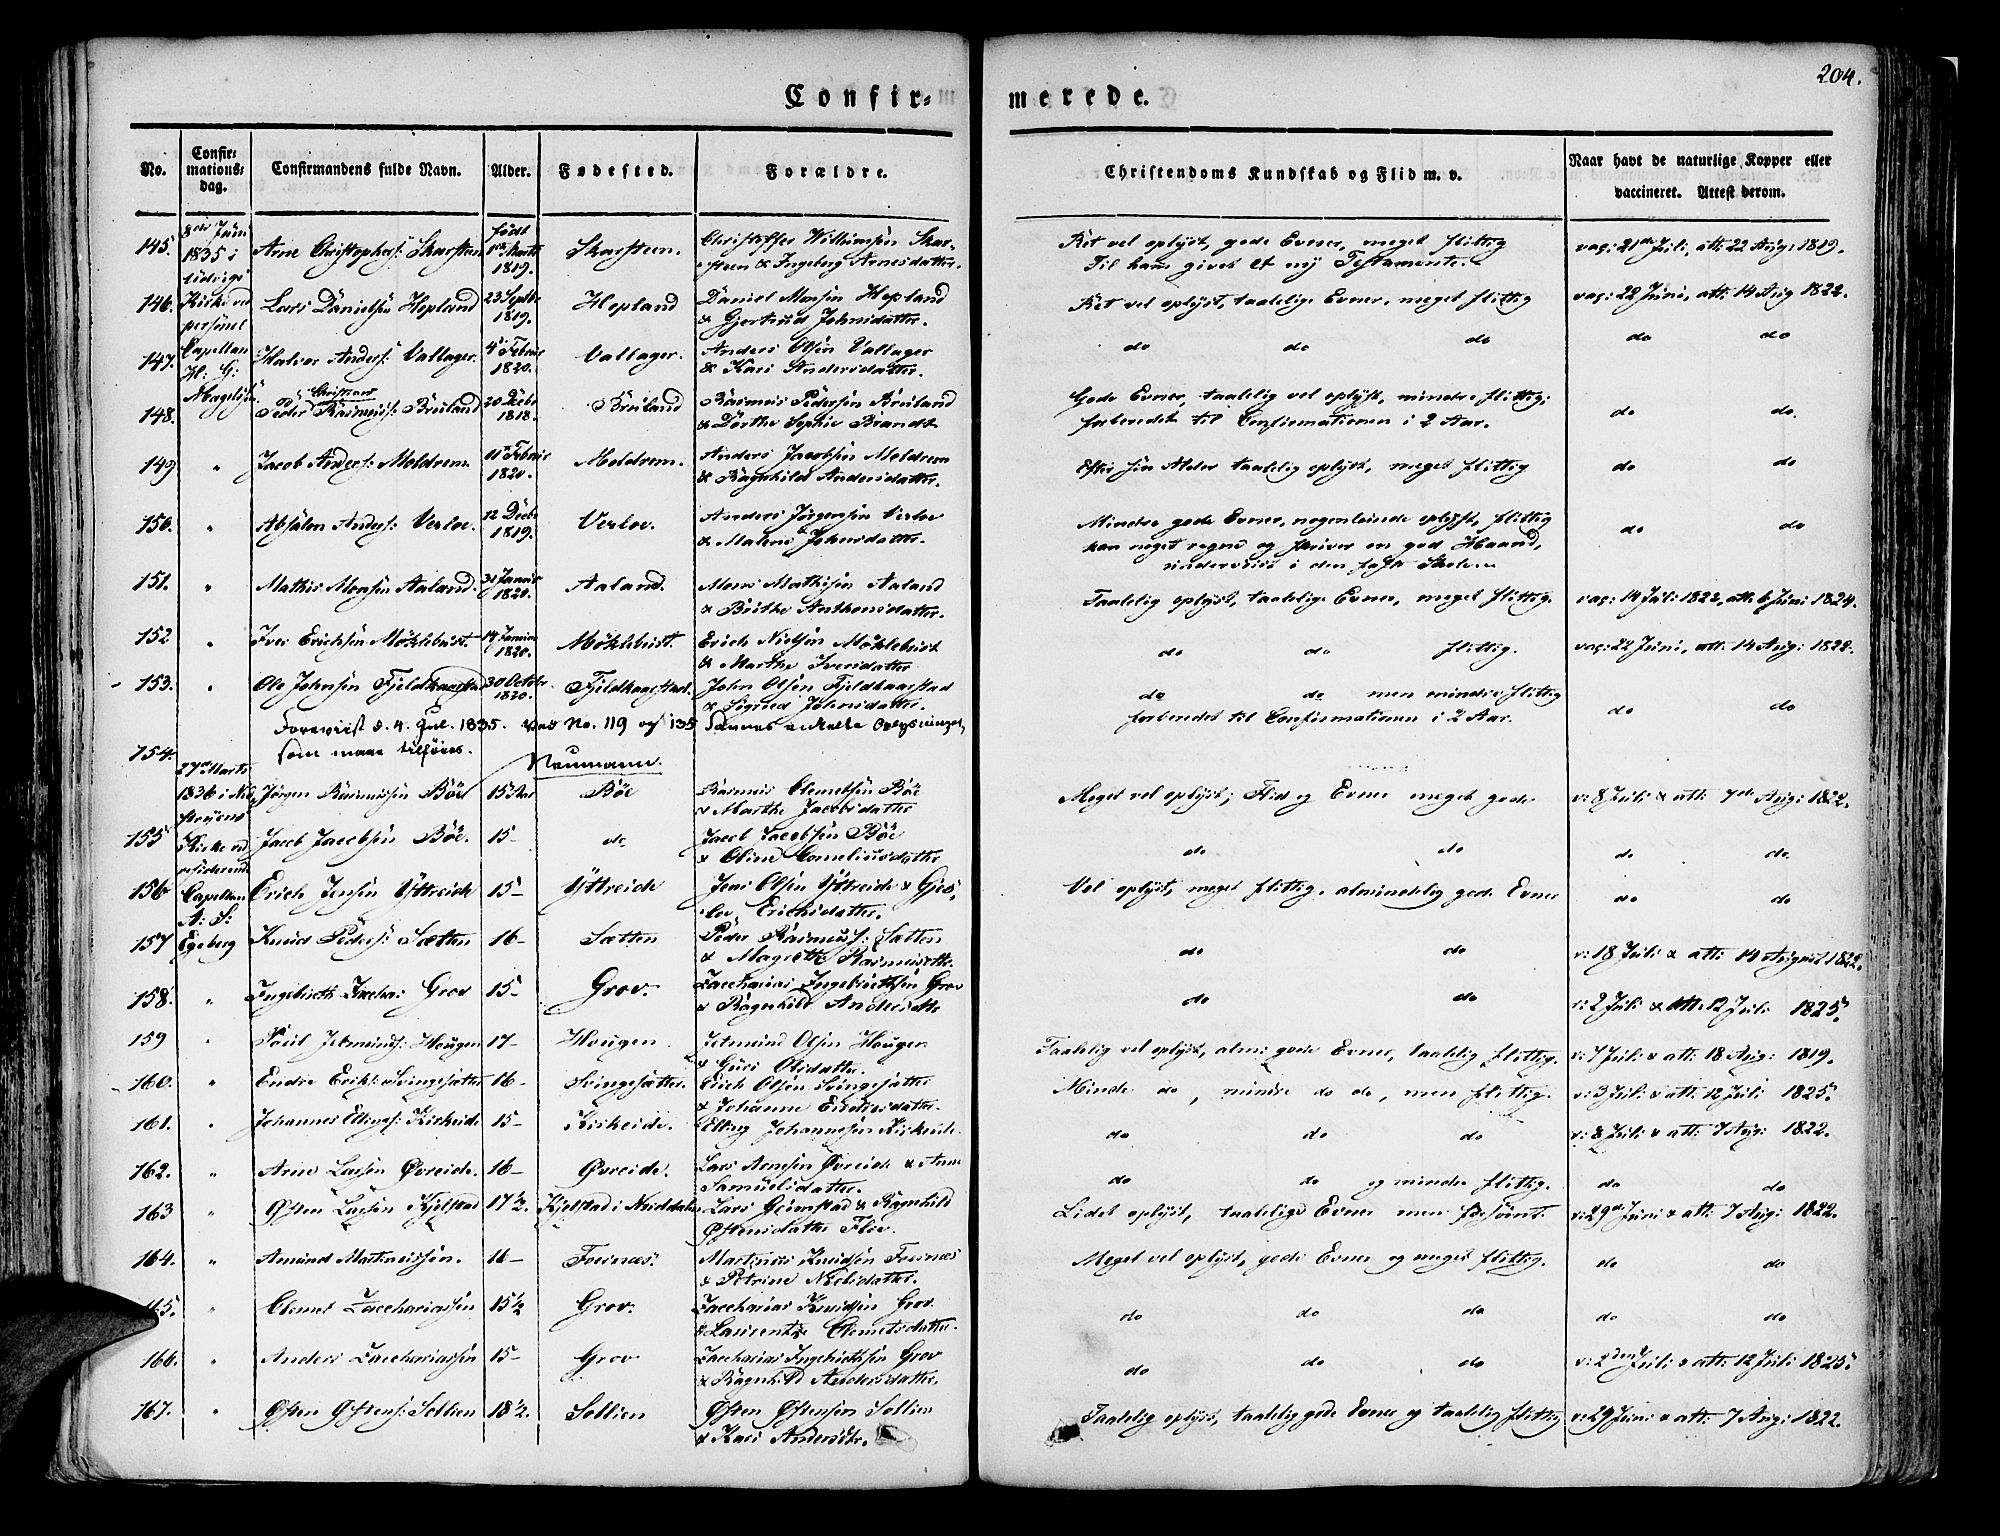 204.
Confir- merede.
No. | Confir-mations-dag. | Confirmandens fulde Navn. | Alder. | Fødested. | Forældre. | Christendoms Kundskab og Flid m. v. | Naar havt de naturlige Kopper eller vaccineret. Attest derom.
8de Juni 1835 i
Kirke ved personel Capellan H: G: Magelssen
145. Arne Christophers: Skarsteen født 1819. Skarsteen. Christopher Willumsen Skarsteen & Ingeborg Arnesdatter. Ret vel oplyst, gode Evner, meget flittig
Til ham givet et nyt Testamente. vac: 21de Juli, att: 22 Aug: 1819.
146. Lars Danielsen Hopland 23 Septbr 1819. Hopland Daniel Monsen Hopland & Gjertrud Johnsdatter. Ret vel oplyst, taalelige Evner, meget flittig vac: 22 Juni, att: 14 Aug 1822.
147. Halvor Anders: Vallager. 4 Februar 1820. Vallager. Anders Olsen Vallager & Kari Andersdatter. do do do do do
148. Peder Christian Rasmuss: Breiland 20 Decbr 1818. Breiland Rasmus Pedersen Breiland & Dorthe Sophie Brandt Gode Evner, taalelig vel oplyst, mindre flittig;
forberedet til Confirmationen i 2 Aar. do do.
149 " Jacob Anders: Moldrem. 11 Februar 1820. Moldrem. Anders Jacobsen Moldrem & Ragnhild Andersdatter. Efter sin Alder taalelig oplyst, meget flittig do do
150. " Absalon Anders: Verloe. 12 Decbr 1819. Verloe. Anders Jørgensen Verloe & Malene Johnsdatter. Mindre gode Evner, nogenlunde oplyst, flittig
kan noget regne og skriver en god Haand,
underviist i den faste Skole. do do
151. " Mathis Monsen Aaland. 31 Januar 1820. Aaland. Mons Mathisen Aaland & Brithe Anthonsdatter. Taalelig oplyst, taalelige Evner, meget flittig. vac: 14 Juli 1822, att: 6 Juni 1824.
152 " Iver Erichsen Møklebust. 14 Januar 1820. Møklebust. Erich Nielsen Møklebust & Marthe Iversdatter do do flittig. vac: 22 Juni, att: 14 Aug: 1822.
153. " Ole Johnsen Fjeldkaarstad 30 Octobr 1820. Fjeldkaarstad. John Olsen Fjeldkaarstad & Sigrid Johnsdatter. do do men mindre flittig
forberedet til Confirmationen i 2 Aar. do do
Foreviist d. 4. Jul. 1835. Ved No. 119 og 135 savnes enkelte Oplysninger,
som maae tilføres.
Neumann.
27de Marts 1836 i Kirke ved residerende Capellan A: S: Egeberg
154. Jørgen Rasmussen Bøe 15 Aar Bøe Rasmus Clemetsen Bøe & Marthe Jacobsdatter Meget vel oplyst; Flid og Evner meget gode v: 8 Juli & att: 7de Aug: 1822.
155 Jacob Jacobsen Bøe. 15 - do Jacob Jacobsen Bøe & Oline Corneliusdatter do do do do.
156 Erich Jensen Yttreide 15 - Yttreide Jens Olsen Yttreide & Erichsdatter. Vel oplyst, meget flittig. almindelig gode Evner do do
157 Knud Peders: Sætten 16 - Sætten Peder Rasmuss: Sætten & Magrethe Rasmusdtr. do do v: 18 Juli & att: 14 August 1822.
158. " Ingebreth Zachar: Grov 15 - Grov. Zacharias Ingebrethsen Grov & Ragnhild Andersdtr do do v: 2 Juli & att: 12 Juli 1825.
159 " Poul Jetmunds: Hougen 17 - Hougen Jetmund Olsen Hougen & Guri Olsdatter. Taalelig vel oplyst, alm: gode Evner, taalelig flittig. v: 7 Juli & att: 18 Aug: 1819.
160. " Endre Eriks: Svingesætter 16 - Svingesætter. Erich Olsen Svingesætter & Johanne Endresdatter. Mindre do, mindre do do, men flittig. v: 3 Juli & att: 12 Juli 1825.
161. " Johannes Ellings: Kirkeide 15 - Kirkeide. Elling Johannesen Kirkeide. do do do v: 8 Juli & att: 7 Aug: 1822.
162. " Arne Larsen Øvreide. 16 - Øvreide. Lars Arnesen Øvreide & Anne Samuelsdatter. do do og mindre flittig. do do
163 " Østen Larsen Kjelstad 17½. Kjelstad i Lars Grimstad & Ragnhild Østensdatter Lidet oplyst, taalelige Evner men forsømt. v: 29de Juni & att: 7 Aug: 1822.
164. " Amund Martinussen. 16 - Martinus Knudsen & Petrine Nielsdatter. Meget vel oplyst, gode Evner og meget flittig. do do
165. " Clemet Zacchariassen 15½ Grov. Zaccharias Knudsen Grov & Laurentze Clemetsdatter. do do do do do
166. " Anders Zacchariassen 15 - Grov Zaccharias Ingebrethsen Grov & Ragnhild Andersdatter. do do do v: 2den Juli & att: 12 Juli 1825.
167. " Østen Østens: Sollien 18½. Sollien Østen Østensen Sollien & Kari Andersdtr. Taalelig oplyst, taalelig gode Evner og taalelig flittig v: 29 Juni & att: 7 Aug: 1822.